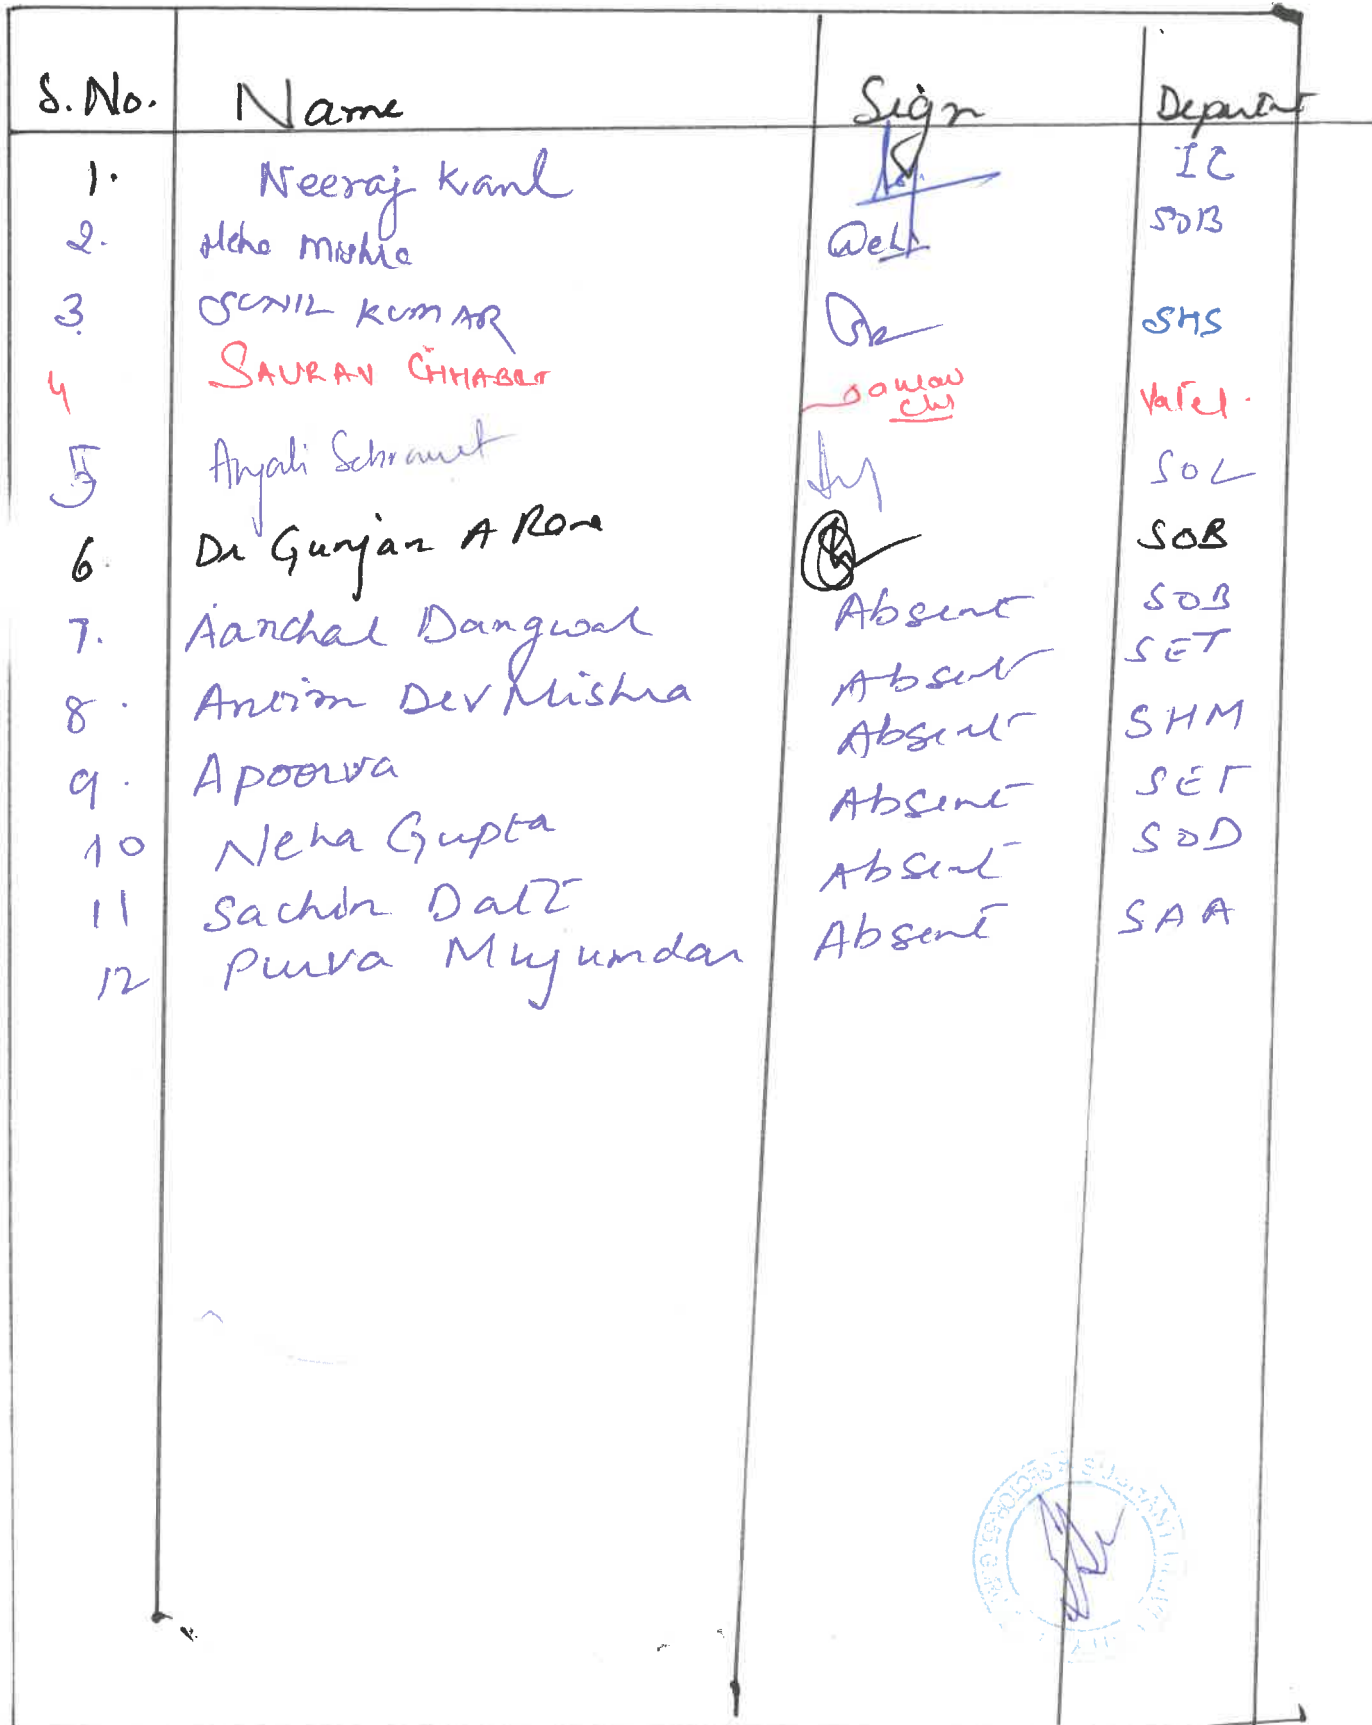 S. No. Name Sign
1. Neeraj IC
2. Neha Mishra SOB
3 SUNIL KUMAR SHS
4 SAURAV Vatel.
5 Anjali SOL
6. Dr Gunjan A SOB
7. Aanchal Dangwal Absent SOB
8. Antim Dev Mishra Absent SET
9. Apoorva Absent SHM
10 Neha Gupta Absent SET
11 Sachin Datt Absent SOD
12 Purva Absent SAA